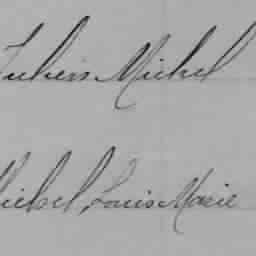 Julien Michel
Michel, Louis Marie